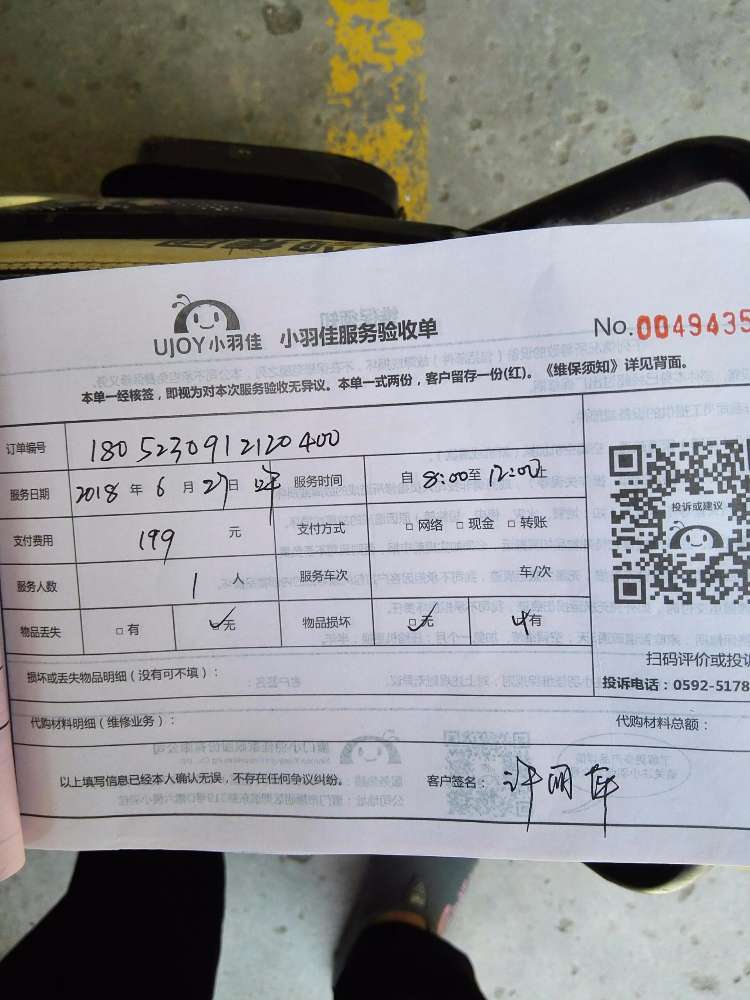 UJOY小羽佳 小羽佳服务验收单 No.0049435
本单一经核签，即视为对本次服务验收无异议。本单一式两份，客户留存一份(红)。《维保须知》详见背面。
订单编号 1805230912120400
服务日期 2018 年 6 月 27 日 服务时间 自 8:00 至 12:00 止
支付费用 199 元 支付方式 □网络 □现金 □转账
投诉或建议
服务人数 1 人 服务车次 车/次
物品丢失 □有 □无 物品损坏 □无 有
扫码评价或投诉
损坏或丢失物品明细（没有可不填）：
投诉电话：0592-5178
代购材料明细（维修业务）：
代购材料总额：
以上填写信息已经本人确认无误，不存在任何争议纠纷。
客户签名：许明萍